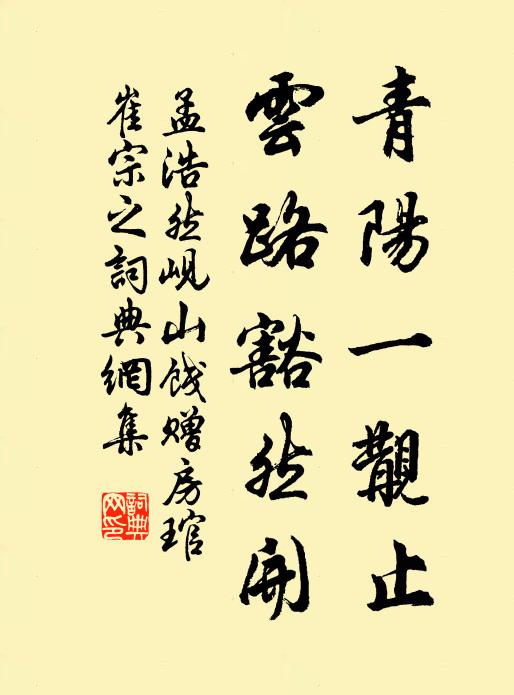 青陽一覯止
雲路豁然開
孟浩然峴山餞赠房琯
崔宗之詞典網集
詞典网印